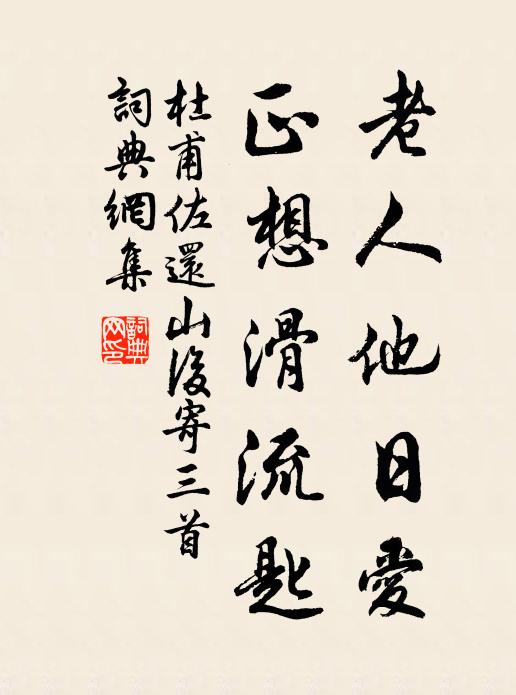 老人他日愛
正想滑流匙
杜甫佐還山後寄三首
詞典網集
詞典网印